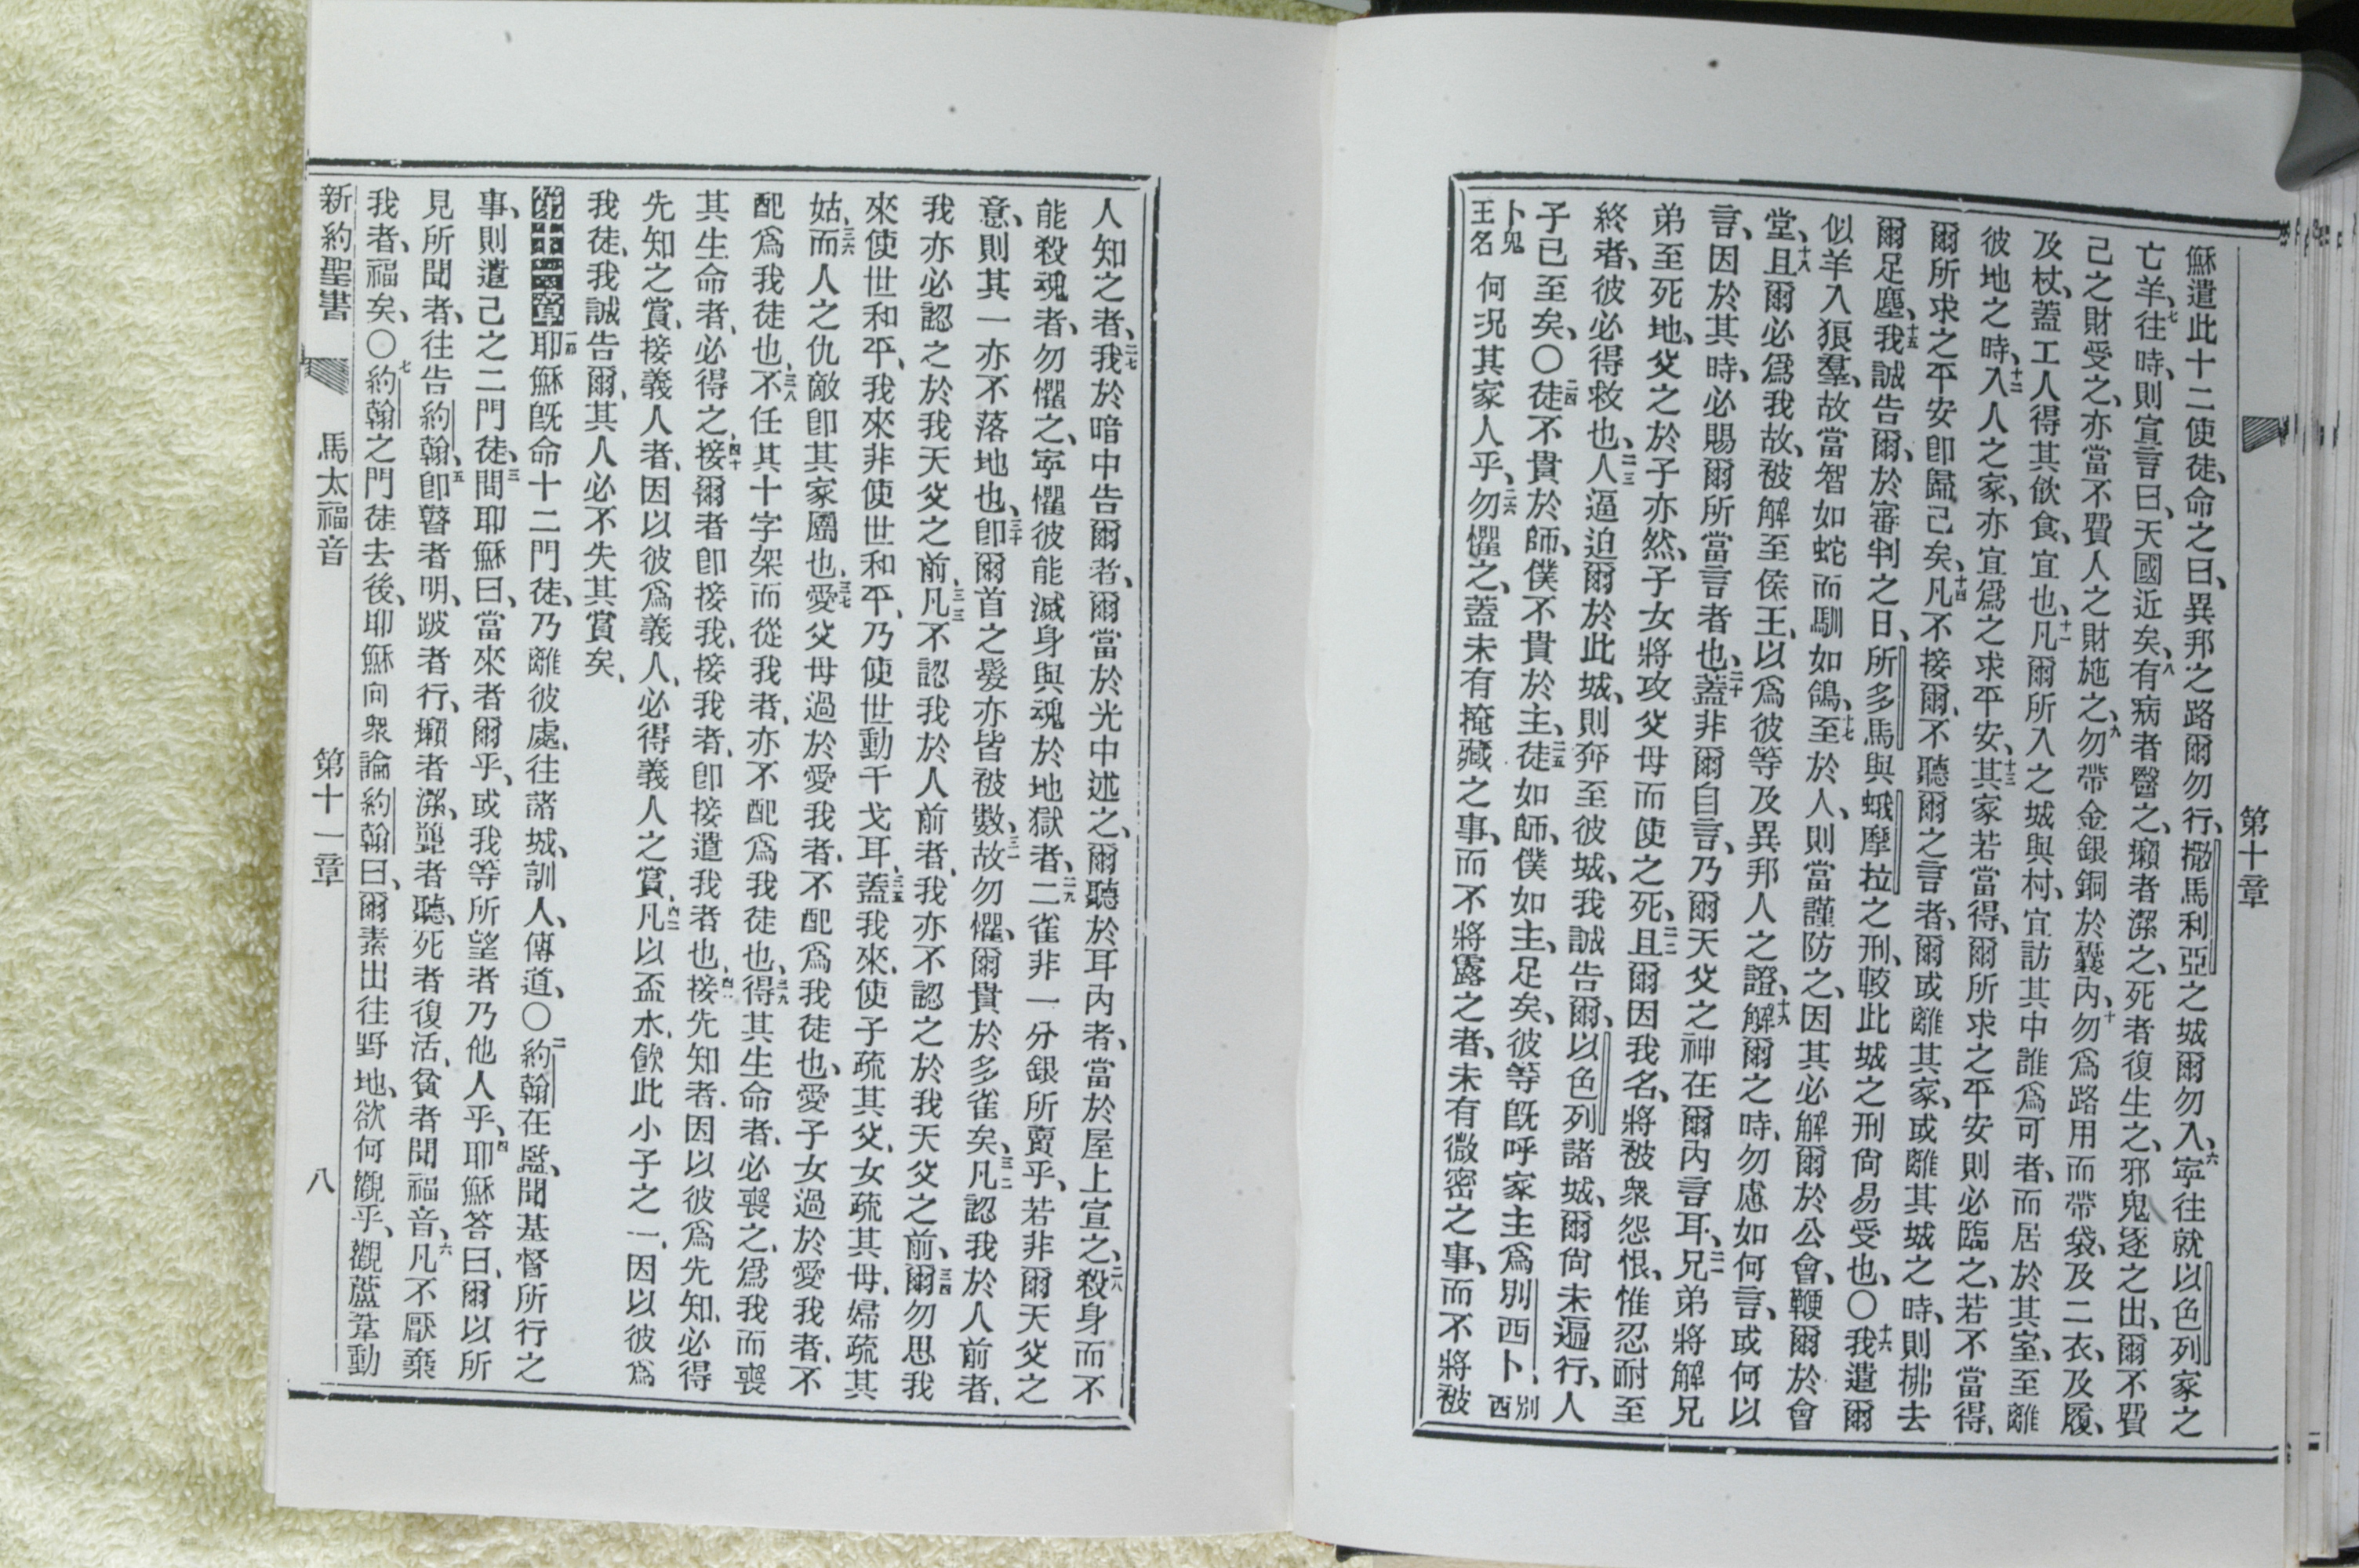 第十章
穌遣此十二使徒、命之曰、異邦之路爾勿行、撒馬利亞之城爾勿入、六寧往就以色列家之
亡羊、七往時、則宣言曰、天國近矣、八有病者醫之、癩者潔之、死者復生之、邪鬼逐之出、爾不費
己之財受之、亦當不費人之財施之、九勿帶金銀銅於囊內、十勿爲路用而帶袋、及二衣、及履、
及杖、蓋工人得其飲食、宜也、十一凡爾所入之城與村、宜訪其中誰爲可者、而居於其室、至離
彼地之時、十二入人之家、亦宜爲之求平安、十三其家若當得、爾所求之平安則必臨之、若不當得、
爾所求之平安卽歸己矣、十四凡不接爾、不聽爾之言者、爾或離其家、或離其城之時、則拂去
爾足塵、十五我誠告爾、於審判之日、所多馬與蛾摩拉之刑、較此城之刑尙易受也、○十六我遣爾
似羊入狼羣、故當智如蛇而馴如鴿、十七至於人、則當謹防之、因其必解爾於公會、鞭爾於會
堂、十八且爾必爲我故、被解至侯王、以爲彼等及異邦人之證、十九解爾之時、勿慮如何言、或何以
言、因於其時、必賜爾所當言者也、二十蓋非爾自言、乃爾天父之神在爾內言耳、二一兄弟將解兄
弟至死地、父之於子亦然、子女將攻父母而使之死、二二且爾因我名、將被衆怨恨、惟忍耐至
終者、彼必得救也、二三人逼迫爾於此城、則奔至彼城、我誠告爾、以色列諸城、爾尙未遍行、人
子已至矣、○二四徒不貴於師、僕不貴於主、二五徒如師、僕如主、足矣、彼等旣呼家主爲別西卜、別西
卜鬼王名何況其家人乎、二六勿懼之、蓋未有掩藏之事、而不將露之者、未有微密之事、而不將被
人知之者、二七我於暗中告爾者、爾當於光中述之、爾聽於耳內者、當於屋上宣之、二八殺身而不
能殺魂者、勿懼之、寧懼彼能滅身與魂於地獄者、二九二雀非一分銀所賣乎、若非爾天父之
意、則其一亦不落地也、三十卽爾首之髮亦皆被數、三一故勿懼、爾貴於多雀矣、三二凡認我於人前者、
我亦必認之於我天父之前、三三凡不認我於人前者、我亦不認之於我天父之前、三四爾勿思我
來使世和平、我來非使世和平、乃使世動干戈耳、三五蓋我來、使子疏其父、女疏其母、婦疏其
姑、三六而人之仇敵卽其家屬也、三七愛父母過於愛我者、不配爲我徒也、愛子女過於愛我者、不
配爲我徒也、三八不任其十字架而從我者、亦不配爲我徒也、三九得其生命者、必喪之、爲我而喪
其生命者、必得之、四十接爾者卽接我、接我者、卽接遣我者也、四一接先知者、因以彼爲先知、必得
先知之賞、接義人者、因以彼爲義人、必得義人之賞、四二凡以盃水、飲此小子之一、因以彼爲
我徒、我誠告爾、其人必不失其賞矣、
第十一章一耶穌旣命十二門徒、乃離彼處、往諸城、訓人、傳道、○二約翰在監、聞基督所行之
事、則遣己之二門徒、三問耶穌曰、當來者爾乎、或我等所望者乃他人乎、四耶穌答曰、爾以所
見所聞者、往告約翰、五卽瞽者明、跛者行、癩者潔、聾者聽、死者復活、貧者聞福音、六凡不厭棄
我者、福矣、○七約翰之門徒去後、耶穌向衆論約翰曰、爾素出往野地、欲何觀乎、觀蘆葦動
新約聖書 馬太福音 第十一章 八